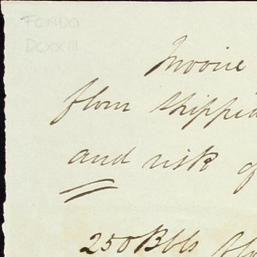 FONDO
DCXXIII
Invoice
flour shipped
and risk of
250 Bbls